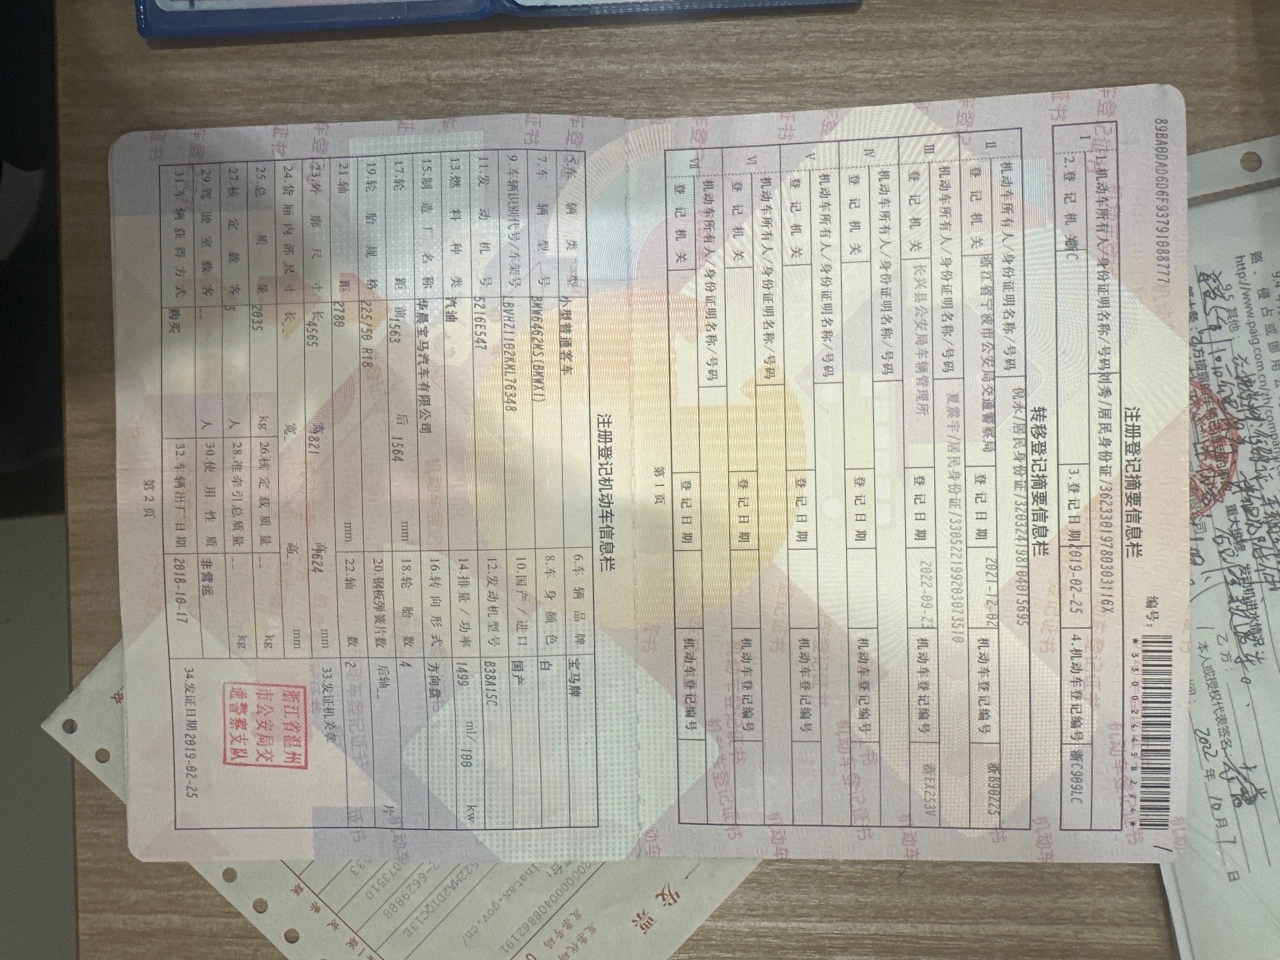 89BA0DAD6D6F93791088777
编号:
注册登记摘要信息栏
I
1.机动车所有人/身份证明名称/号码 刘秀/居民身份证/36233019780303116X
2.登记机关 3.登记日期 2019-02-25 4.机动车登记编号 浙C909LC
转移登记摘要信息栏
II 机动车所有人/身份证明名称/号码 倪永/居民身份证/320324198104012695
登记机关 浙江省宁波市公安局交通警察局 登记日期 2021-12-02 机动车登记编号 浙B90ZZ5
III 机动车所有人/身份证明名称/号码 夏震宇/居民身份证/330522199203073510
登记机关 长兴县公安局车辆管理所 登记日期 2022-09-23 机动车登记编号 浙EX253V
IV 机动车所有人/身份证明名称/号码
登记机关 登记日期 机动车登记编号
V 机动车所有人/身份证明名称/号码
登记机关 登记日期 机动车登记编号
VI 机动车所有人/身份证明名称/号码
登记机关 登记日期 机动车登记编号
VII 机动车所有人/身份证明名称/号码
登记机关 登记日期 机动车登记编号
第1页
注册登记机动车信息栏
5.车辆类型 小型普通客车 6.车辆品牌 宝马牌
7.车辆型号 BMW6462MS(BMWX1) 8.车身颜色 白
9.车辆识别代号/车架号 LBVHZ1102KML76348 10.国产/进口 国产
11.发动机号 5216E547 12.发动机型号 B38A15C
13.燃料种类 汽油 14.排量/功率 1499 ml/100 kw
15.制造厂名称 华晨宝马汽车有限公司 16.转向形式 方向盘
17.轮距 前1563 后 1564 mm 18.轮胎数 4
19.轮胎规格 225/50 R18 20.钢板弹簧片数 后轴-- 片
21.轴距 2780 mm 22.轴数 2
23.外廓尺寸 长4565 宽1821 高1624 mm 33.发证机关章
24.货厢内部尺寸 长-- 宽-- 高-- mm
25.总质量 2035 kg 26.核定载质量 -- kg
27.核定载客 5 人 28.准牵引总质量 -- kg
29.驾驶室载客 -- 人 30.使用性质 非营运
31.车辆获得方式 购买 32.车辆出厂日期 2018-10-17 34.发证日期 2019-02-25
浙江省温州
市公安局交
通警察支队
第2页
发票
2022年10月7日